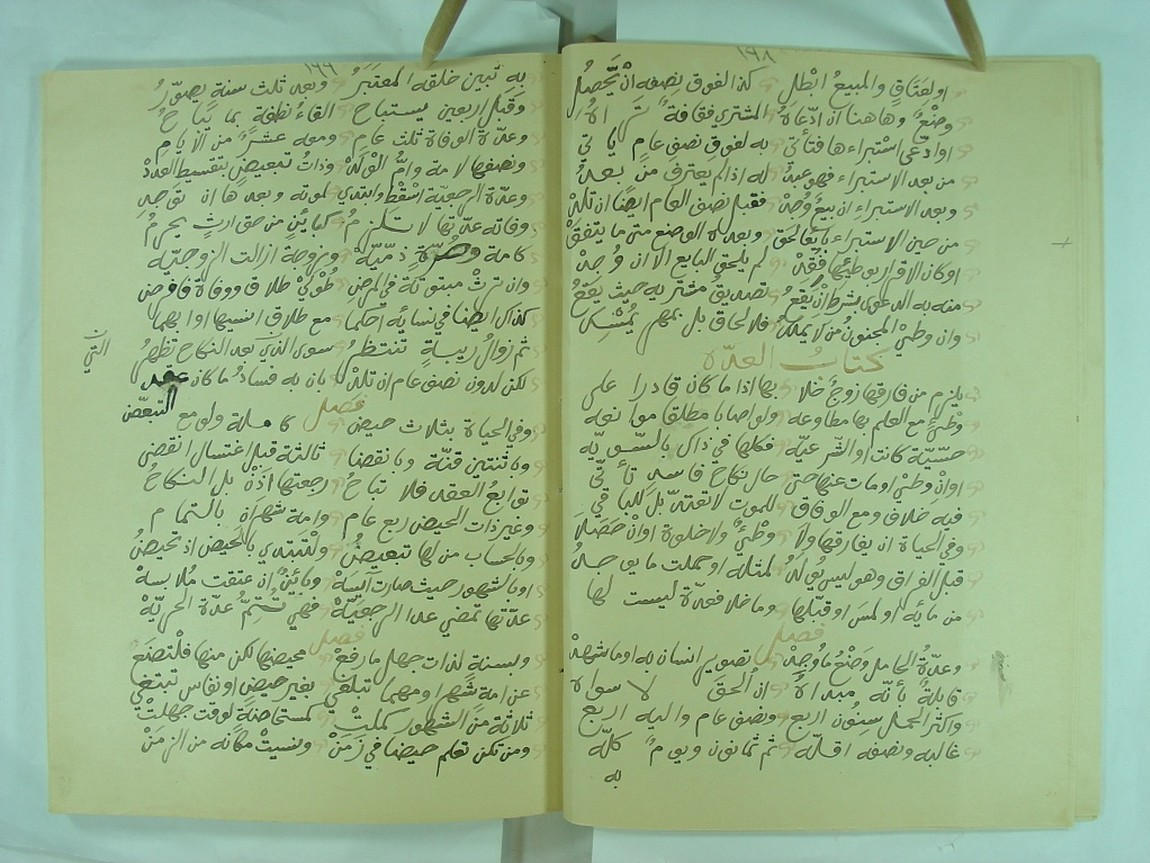 ١٩٨
او لعتاق والمبيع ابطل كذا لفوق نصفه ان تحصل
وضع وهاهنا ان ادعاه المشتري فقافة
او ادعى استبراءها فتأتي به لفوق نصف عام يا تي
من بعد الاستبراء فهو عبد له اذا لم يعترف من بعد
وبعد الاستبراء ان بيع وجد فقبل نصف العام ايضا ان تلد
من حين الاستبراء بايعا لحق وبعده الوضع متى ما يتفق
او كان الاقرار بوطئها فقد لم يلحق البايع الا ان وجد
منه به الدعوى بشرط ان يقع تصديق مشتر به حيث يقع
وان وطئ المجنون من لا يملك فلا لحاق بل بمهر يمسك
كتاب العدة
يلزم من فارقها زوج خلا بها اذا ما كان قادرا على
وطئ مع العلم بها مطاوعه ولو اصابا مطلقا موانعه
حسية كانت او الشرعية فكلها في ذاك بالسويه
او ان وطئ او مات عنها حتى حال نكاح فاسد تأتى
فيه خلاف ومع الوفاق للموت لا تعتد بل للباقي
وفي الحياة ان يفارقها ولا وطئ ولا خلوة او ان حصلا
قبل الفراق وهو ليس يولد لمثله او حملت ما يوجد
من مائه او لمس او قبلها وما خلا فعدة ليست لها
فصل
وعدة الحامل وضع ما وجد تصوير انسان به او ما شهد
قابلة بأنه مبدأه ان ألحق لا سواه
واكثر الحمل سنون اربع ونصف عام واليه اربع
غالبه ونصفه اقله ثم ثمانون ويوم كله
به
١٩٩
به تبين خلقه المعتبر وبعد ثلث سنة يصور
وقبل اربعين يستباح القاء نطفة بما يباح
وعدة الوفاة ثلث عام ومعه عشر من الايام
ونصفها لامة وام الولد وذات تبعيض بتقسيط العدد
وعدة الرجعية اسقط وابتدي لموته وبعدها ان توجد
وفاته عدتها لا تستلزم كبائن من حق ارث يحرم
كامة وحرة ذمية وزوجة ازالت الزوجيه
وان ترث مبتوتة في المرض طولي طلاق ووفاة فافرض
كذاك ايضا في نسائه احكما مع طلاق انسيها او ابهما
ثم زوال ريبة تنتظر سوى الذي بعد النكاح تظهر
لكن لدون نصف عام ان تلد بان به فساد ما كان عقد
فصل
وفي الحياة بثلاث حيض كاملة ولو مع التبعض
وباثنتين قنة وبانقضا ثالثة قبل اغتسال انقضى
توابع العقد فلا تباح رجعتها اذن بل النكاح
وغير ذات الحيض ربع عام وامة شهران بالتمام
وبالحساب من لها تبعيض ولتبتدي بالحيض اذ تحيض
او بالشهور حيث صارت آيسة وبائن ان عتقت ملابسة
عدتها تمضي عدا الرجعية فهي تتم عدة الحرية
فصل
وبسنة لذات جهل ما رفع محيضها لكن منها فلتضع
عن امة شهرا ومهما تبلغي بغير حيض او نفاس تبتغي
ثلاثة من الشهور كملت كمستحاضة لوقت جهلت
ومن تكن تعلم حيضا في زمن ونسيت مكانه من الزمن